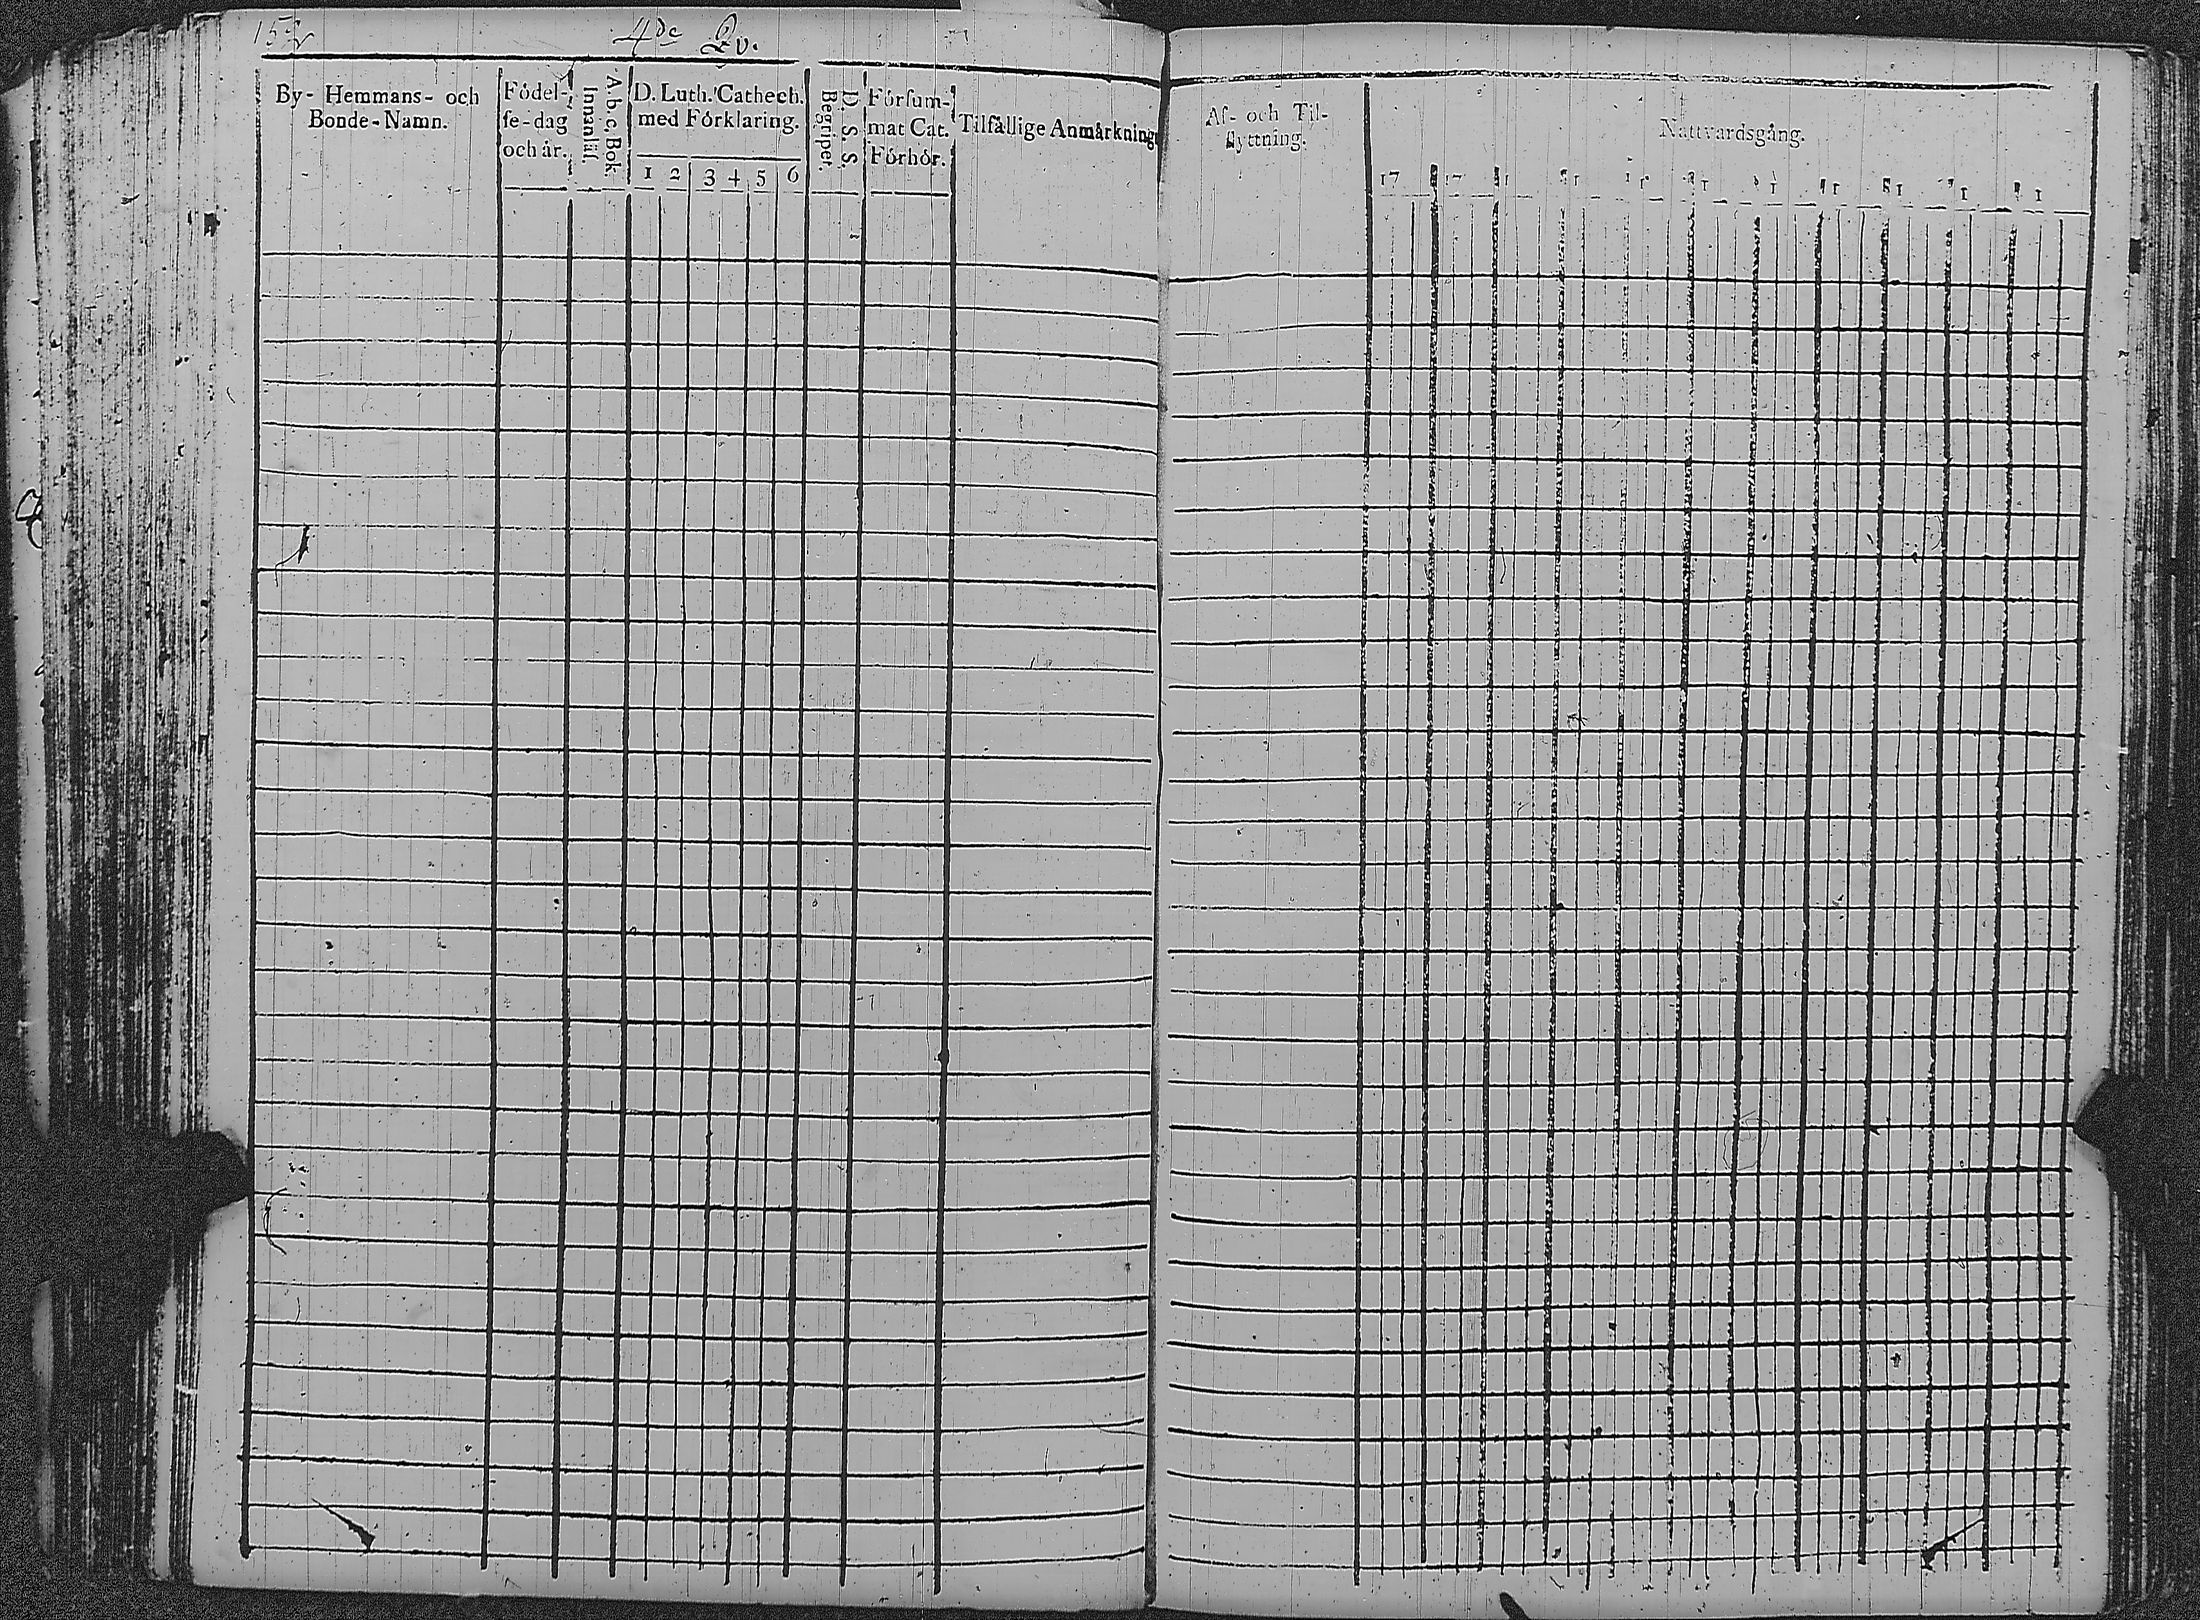 4de Qv.
By- Hemmans- och
Bonde-Namn.
Födel-
se-dag
och år.
Innantil.
A b c, Bok
D. Luth. Cathech.
med Förklaring.
1 2 3 4 5 6
D. S. S.
Begriper.
Försum-
mat Cat.
Förhör.
Tilfällige Anmärkning
Af- och Til-
flyttning.
Nattvardsgång.
17 17 1 1 1 1 1 1 1 1 1